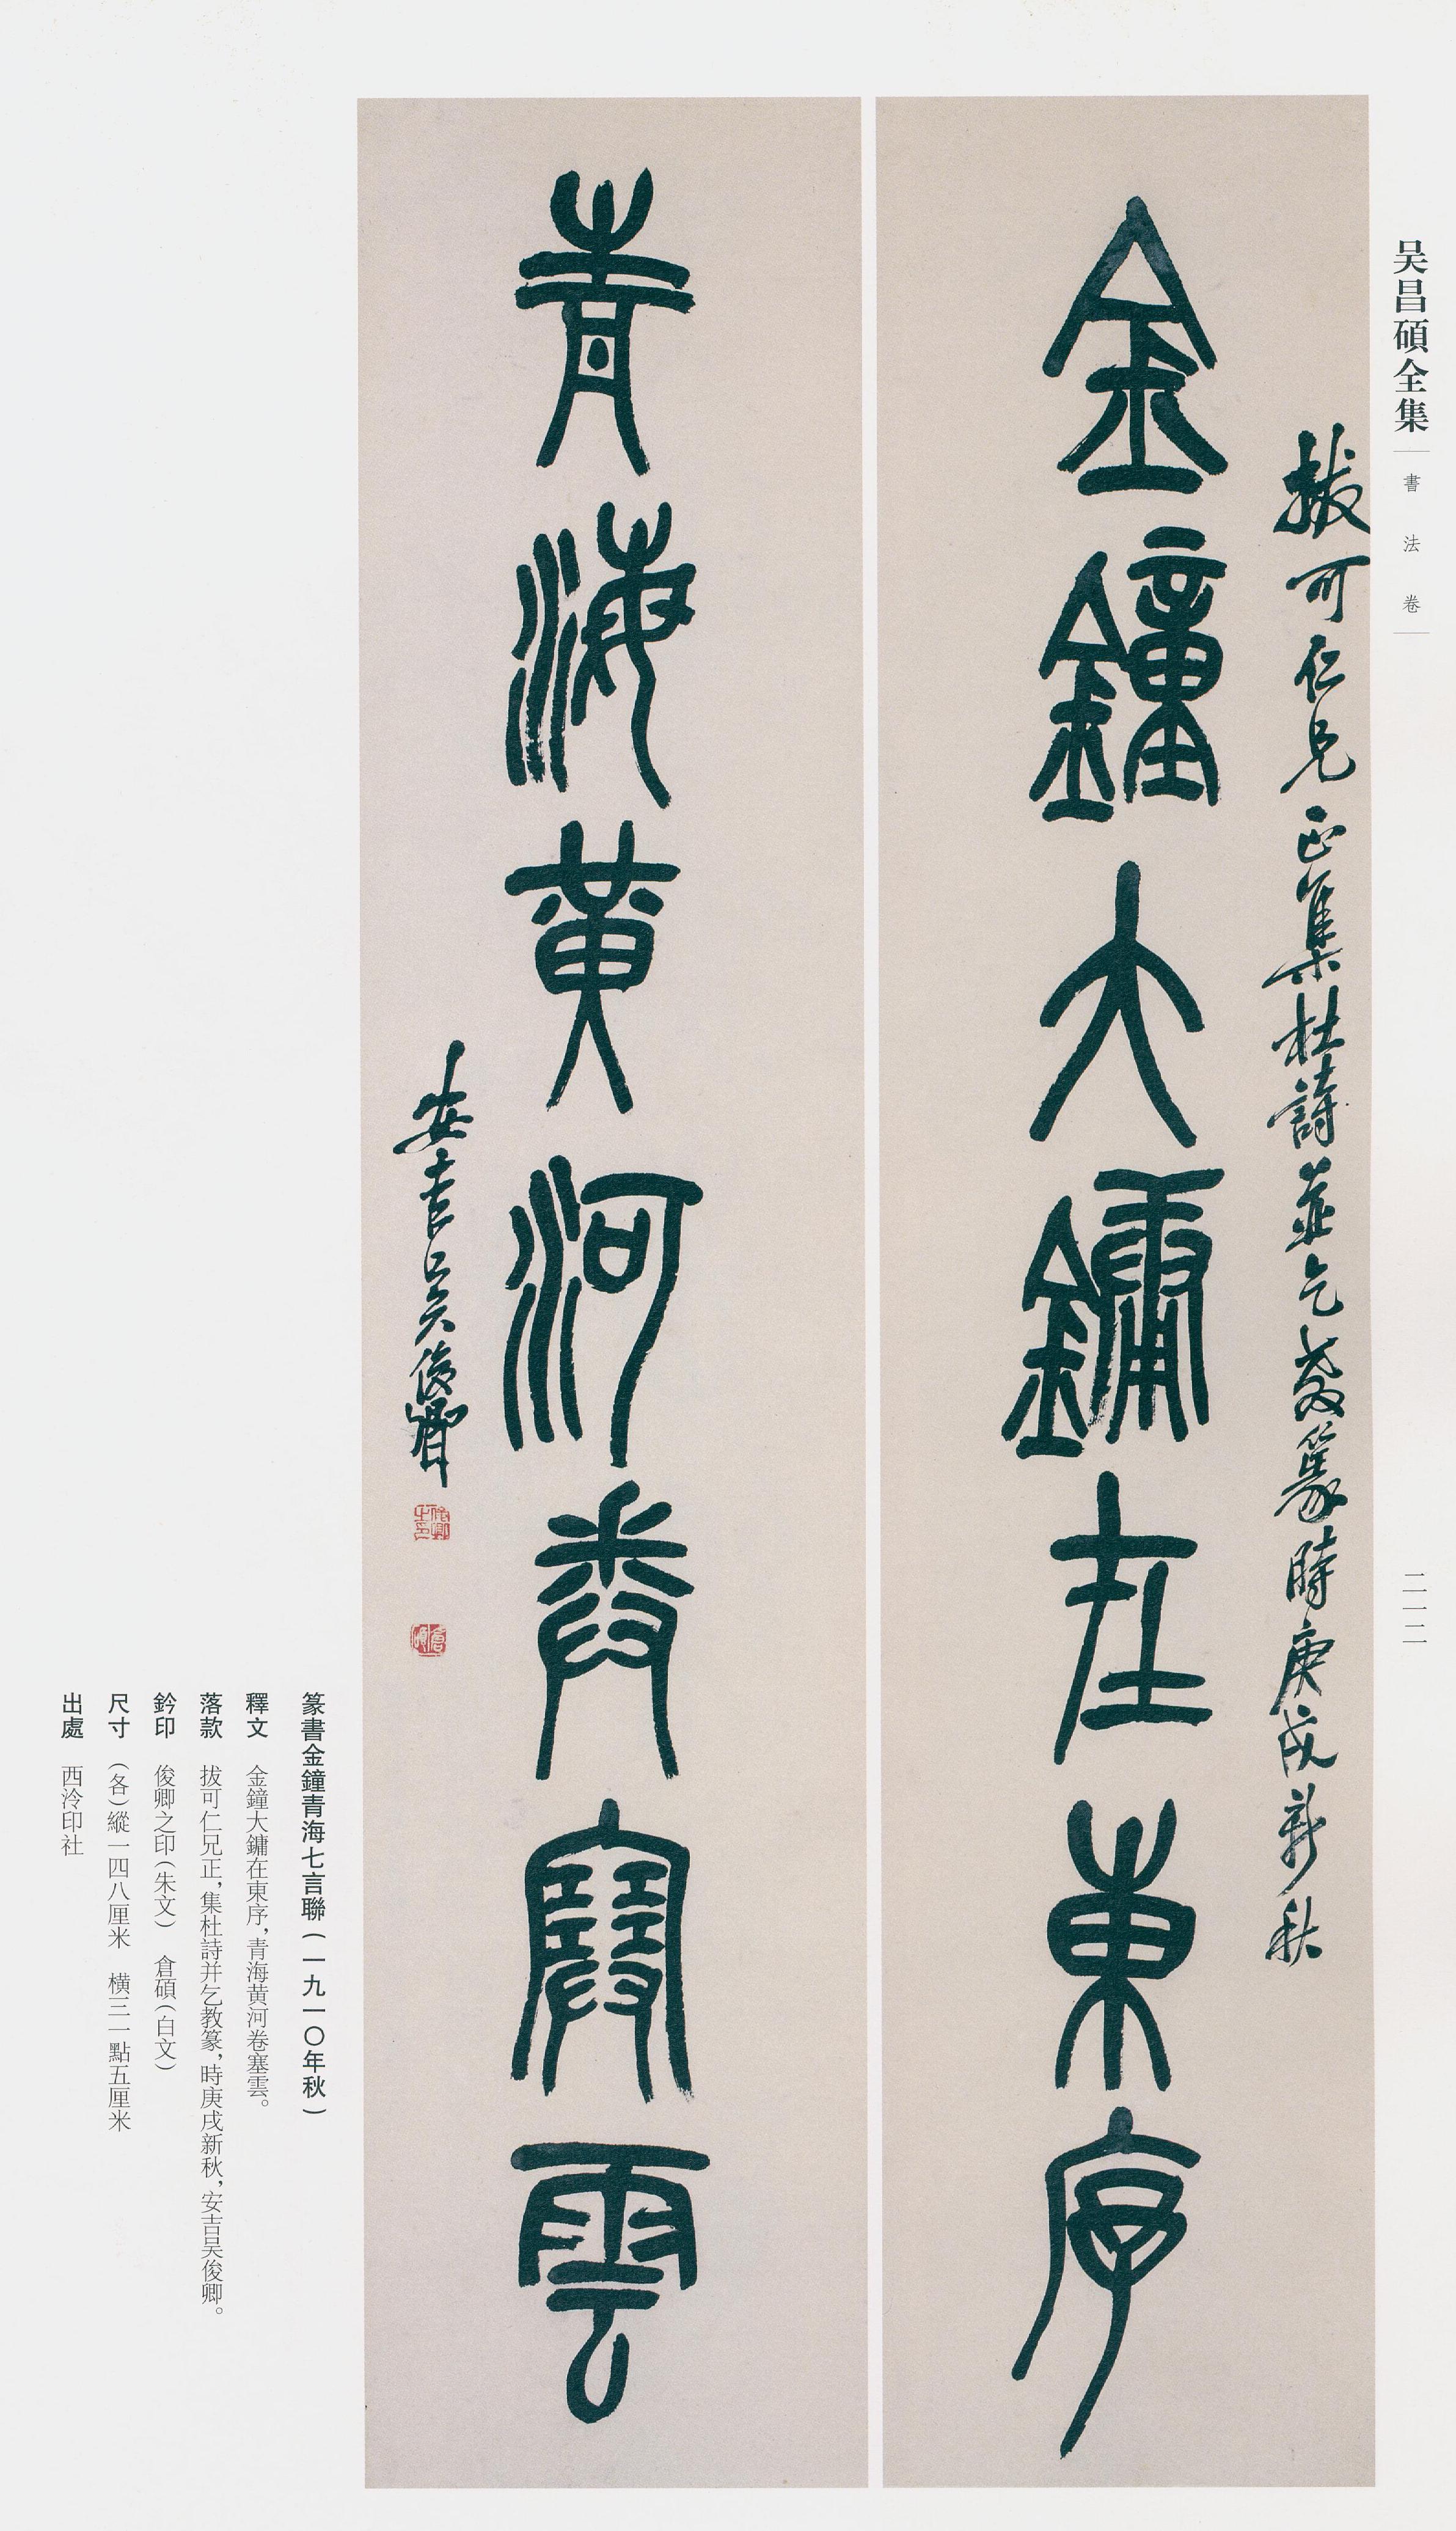 吴昌碩全集
書法卷
二一二
拔可仁兄正集杜詩並乞教篆時庚戌新秋
金鐘大鏞在東序
青海黄河卷塞雲
安吉吴俊卿
俊卿之印
倉碩
篆書金鐘青海七言聯（一九一〇年秋）
釋文　金鐘大鏞在東序，青海黄河卷塞雲。
落款　拔可仁兄正，集杜詩并乞教篆，時庚戌新秋，安吉吴俊卿。
鈐印　俊卿之印（朱文）　倉碩（白文）
尺寸　（各）縱一四八厘米　橫三一點五厘米
出處　西泠印社